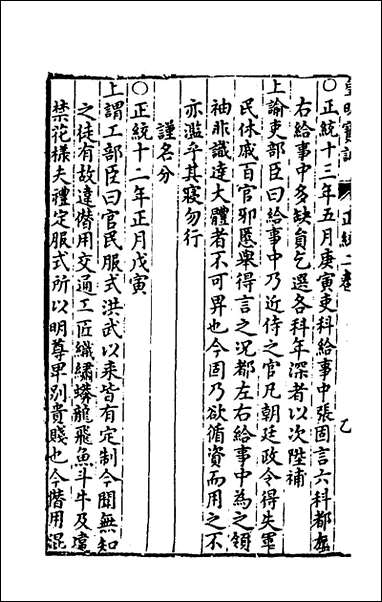 皇明寶訓 正統二卷 乙
○正統十三年五月庚寅吏科給事中張固言六科都左
右給事中多缺員乞選各科年深者以次陞補
上諭吏部臣曰給事中乃近侍之官凡朝廷政令得失軍
民休戚百官邪慝舉得言之况都左右給事中為之領
袖非識達大體者不可畀也今固乃欲循資而用之不
亦濫乎其寢勿行
謹名分
○正統十二年正月戊寅
上謂工部臣曰官民服式洪武以來皆有定制今聞無知
之徒有故違僣用交通工匠織繡蟒龍飛魚斗牛及違
禁花樣夫禮定服式所以明尊卑別貴賤也今僣用混